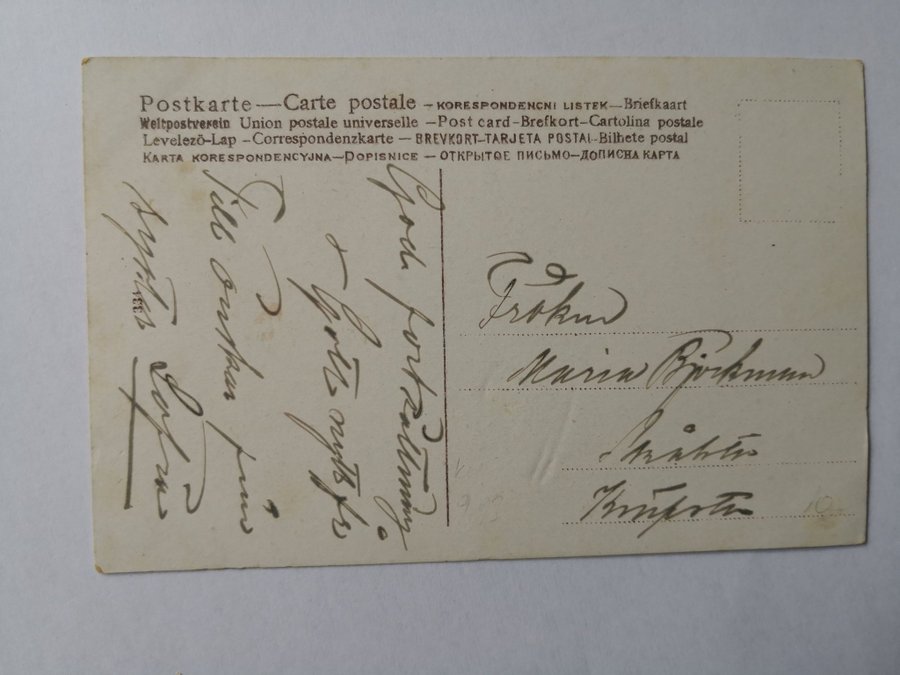 Postkarte — Carte postale – KORESPONDENCNI LISTEK – Briefkaart
Weltpostverein Union postale universelle – Post card - Brefkort - Cartolina postale
Levelező-Lap - Correspondenzkarte – BREVKORT-TARJETA POSTAL - Bilhete postal
KARTA KORESPONDENCYJNA – DOPISNICE – ОТКРЫТОЕ ПИСЬМО – ДОПИСНА КАРТА
God fortsättning
& Gott nytt år
Till önskar min
syster Sofia
Fröken
Maria Björkman